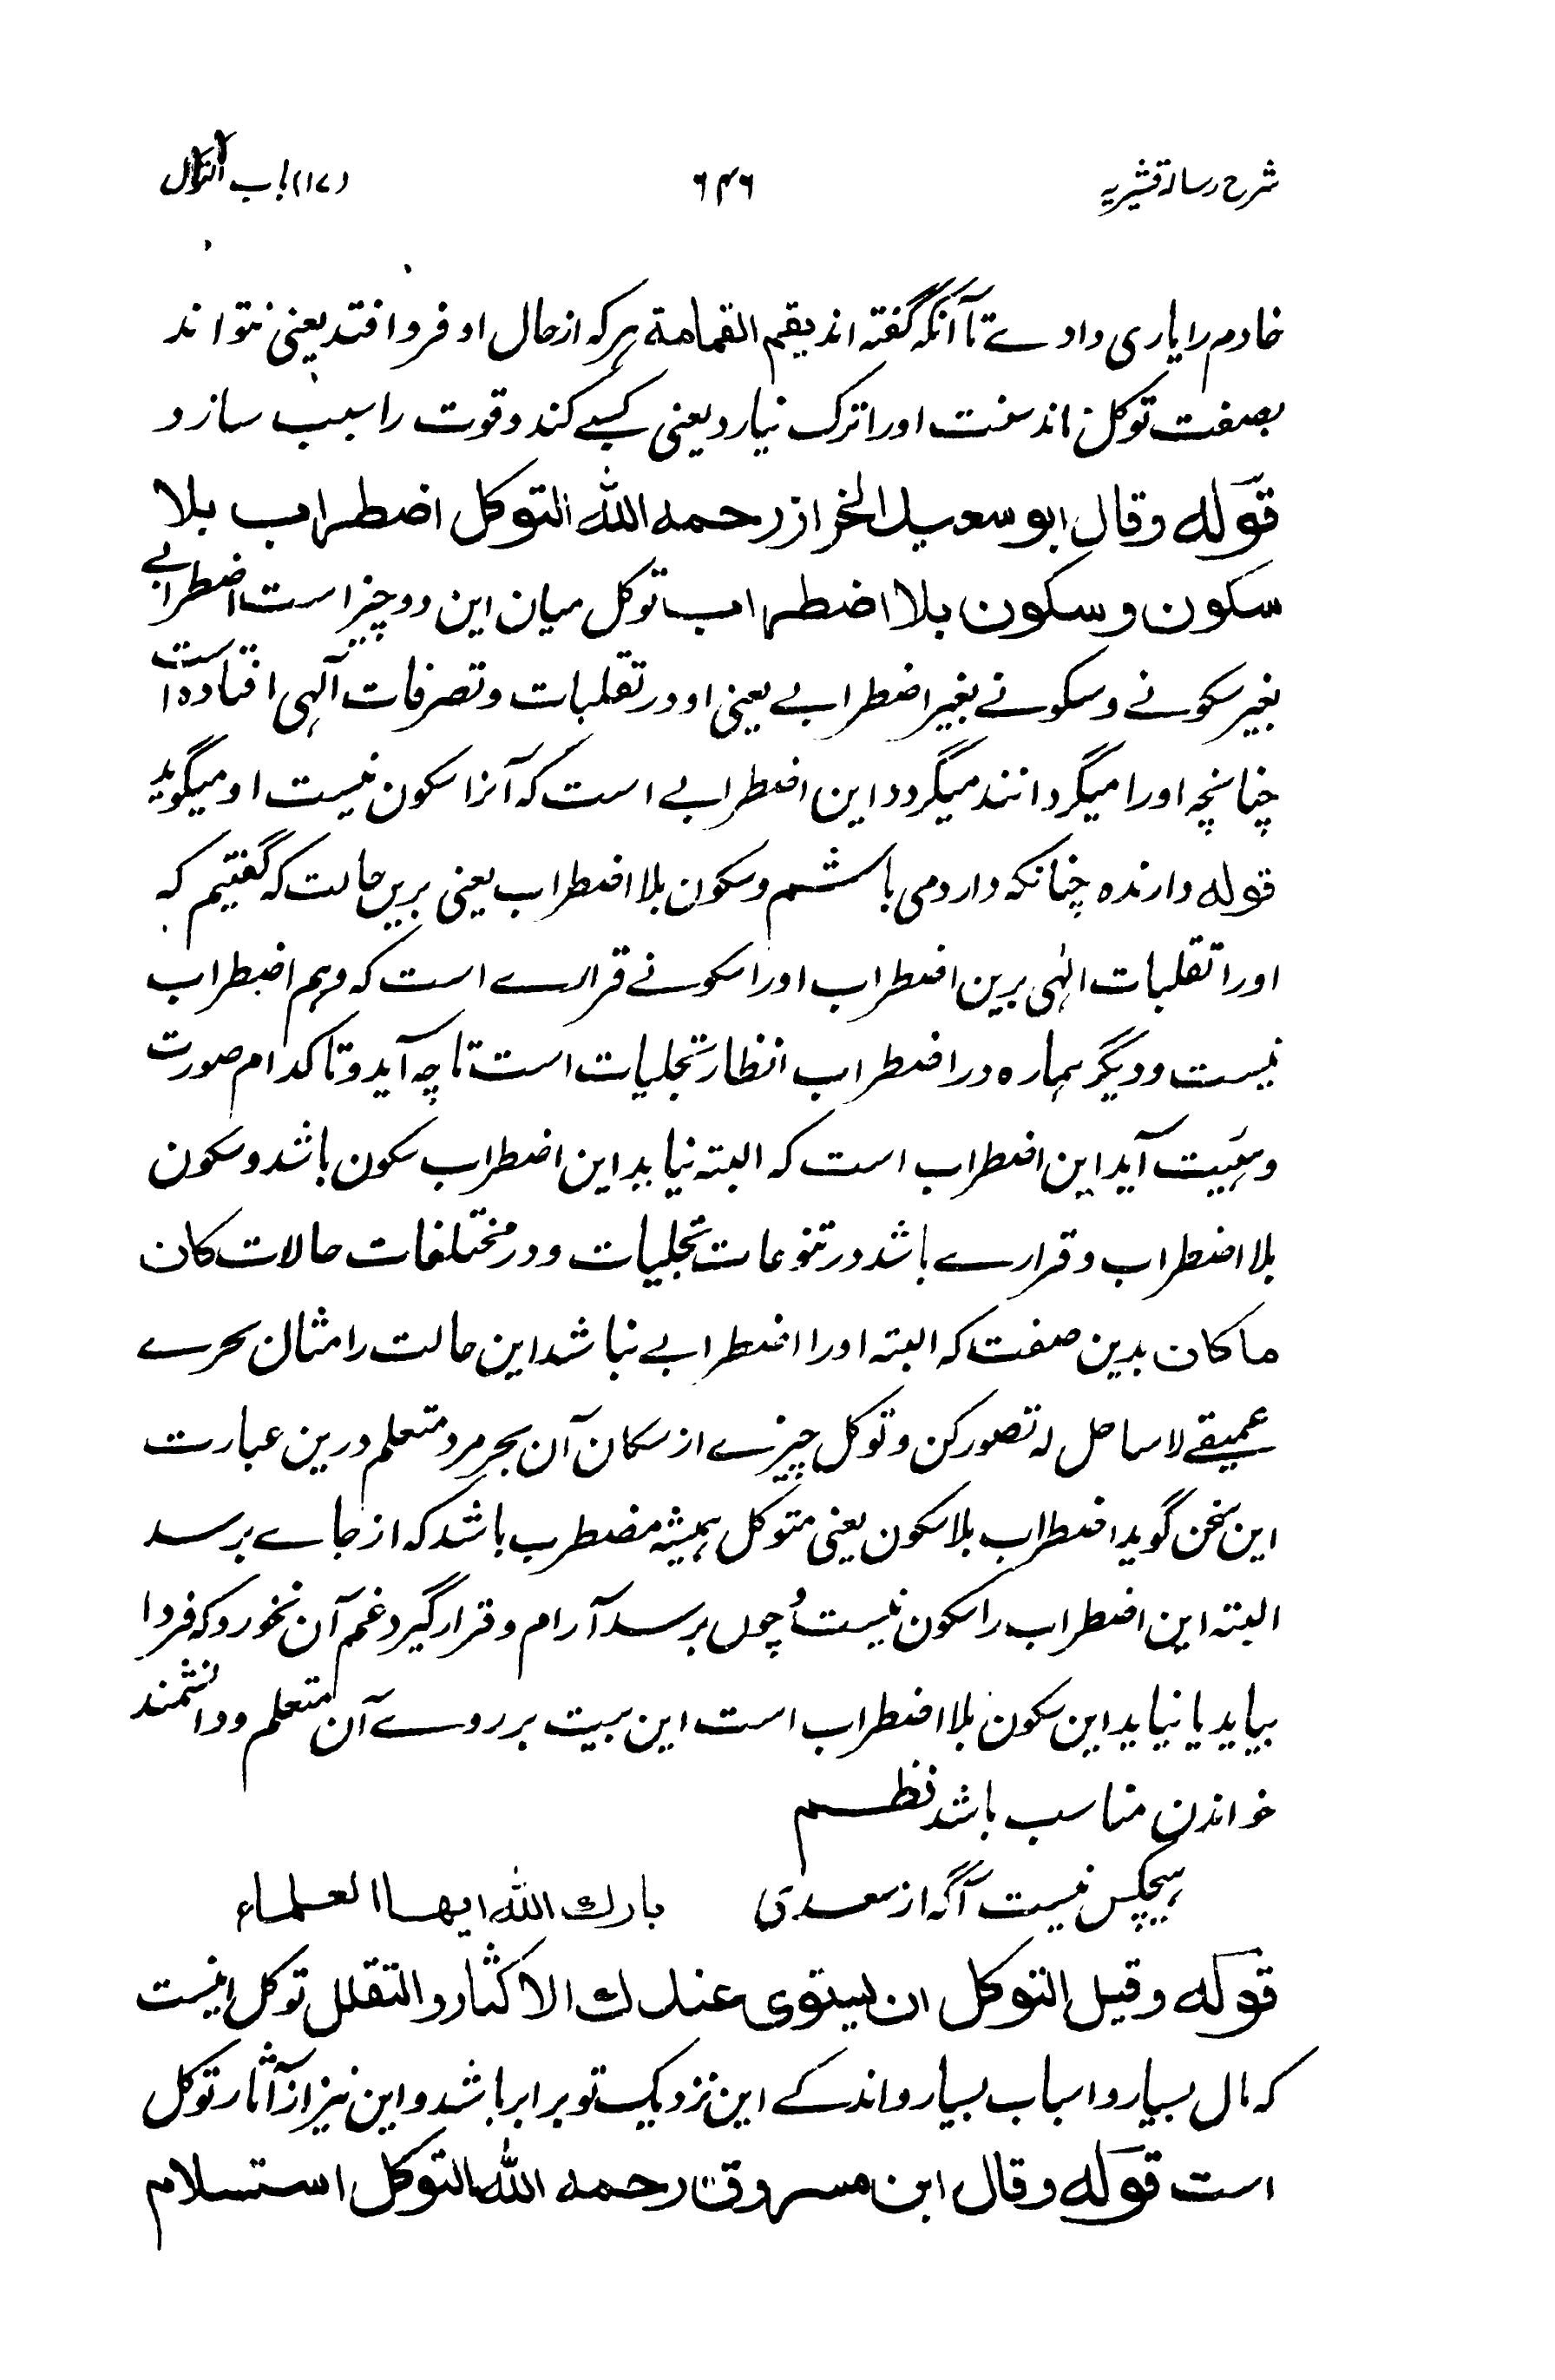 شرح رسالة قشیریه ۶۴۶ (۱۷) باب التوکل
خادم را یاری دادے تا آنکه گفته اند یقم القمامة هر که از حال او فرو افتد یعنی نتواند
بصفت توکل ماند سنت او را ترک نیارد یعنی کسبے کند و قوت را سبب سازد
قوله وقال ابو سعید الخراز رحمه الله التوکل اضطراب بلا
سکون و سکون بلا اضطراب توکل میان این دو چیز است اضطرابے
بغیر سکونے و سکونے بغیر اضطرابے یعنی او در تقلبات و تصرفات آلهی افتاده است
چنانچه او را میگردانند میگردد این اضطرابے است که آنرا سکون نیست او میگوید
قوله دارنده چنانکه دارد می باشم و سکون بلا اضطراب یعنی برین حالت که گفتیم که
او را تقلبات الٰهی برین اضطراب او را سکونے قرارے است که وهم اضطراب
نیست و دیگر هماره در اضطراب انتظار تجلیات است تا چه آید و تا کدام صورت
و هیئت آید این اضطراب است که البته نیاید این اضطراب سکون باشد و سکون
بلا اضطراب و قرارے باشد در تنوعات تجلیات و در مختلفات حالات کان
ما کان بدین صفت که البته او را اضطرابے نباشد این حالت را مثال بحرے
عمیقے لا ساحل له تصور کن و توکل چیزے از سکان آن بحر مرد متعلم درین عبارت
این سخن گوید اضطراب بلا سکون یعنی متوکل همیشه مضطرب باشد که از جاے برسد
البته این اضطراب را سکون نیست و چوں برسد آرام و قرار گیرد غم آن نخورد که فردا
بیاید یا نیاید این سکون بلا اضطراب است این بیت بر روے آن متعلم و دانشمند
خواندن مناسب باشد نظم
هیچکس نیست آگه از سعدی بارك الله ایها العلماء
قوله وقیل التوکل ان یستوی عندك الاکثار والتقلل توکل اینست
که مال بسیار و اسباب بسیار و اندکے این نزدیک تو برابر باشد و این نیز از آثار توکل
است قوله وقال ابن مسروق رحمه الله التوکل استسلام